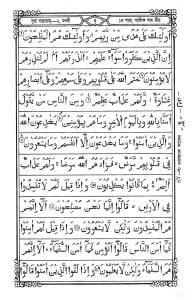 اُولٰٓئِكَ عَلٰى هُدًى مِّنْ رَّبِّهِمْ وَاُولٰٓئِكَ هُمُ الْمُفْلِحُوْنَ
اِنَّ الَّذِيْنَ كَفَرُوْا سَوَآءٌ عَلَيْهِمْ ءَاَنْذَرْتَهُمْ اَمْ لَمْ تُنْذِرْهُمْ
لَا يُؤْمِنُوْنَ خَتَمَ اللّٰهُ عَلٰى قُلُوْبِهِمْ وَعَلٰى سَمْعِهِمْ وَعَلٰٓى
اَبْصَارِهِمْ غِشَاوَةٌ وَّلَهُمْ عَذَابٌ عَظِيْمٌ وَمِنَ النَّاسِ مَنْ يَّقُوْلُ
اٰمَنَّا بِاللّٰهِ وَبِالْيَوْمِ الْاٰخِرِ وَمَا هُمْ بِمُؤْمِنِيْنَ يُخٰدِعُوْنَ
اللّٰهَ وَالَّذِيْنَ اٰمَنُوْا وَمَا يَخْدَعُوْنَ اِلَّآ اَنْفُسَهُمْ وَمَا يَشْعُرُوْنَ
فِيْ قُلُوْبِهِمْ مَّرَضٌ فَزَادَهُمُ اللّٰهُ مَرَضًا وَلَهُمْ عَذَابٌ
اَلِيْمٌ بِمَا كَانُوْا يَكْذِبُوْنَ وَاِذَا قِيْلَ لَهُمْ لَا تُفْسِدُوْا
فِي الْاَرْضِ قَالُوْٓا اِنَّمَا نَحْنُ مُصْلِحُوْنَ اَلَآ اِنَّهُمْ
هُمُ الْمُفْسِدُوْنَ وَلٰكِنْ لَّا يَشْعُرُوْنَ وَاِذَا قِيْلَ لَهُمْ اٰمِنُوْا
كَمَآ اٰمَنَ النَّاسُ قَالُوْٓا اَنُؤْمِنُ كَمَآ اٰمَنَ السُّفَهَآءُ اَلَآ اِنَّهُمْ
هُمُ السُّفَهَآءُ وَلٰكِنْ لَّا يَعْلَمُوْنَ وَاِذَا لَقُوا الَّذِيْنَ اٰمَنُوْا قَالُوْٓا